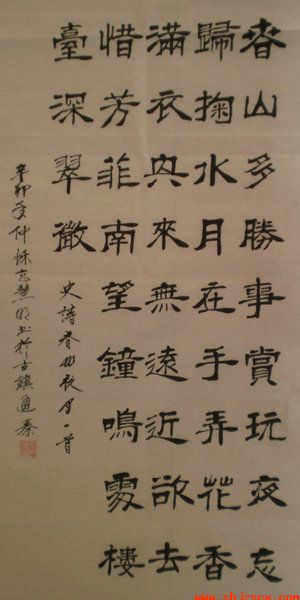 春山多勝事賞玩夜忘
歸掬水月在手弄花香
滿衣興來無遠近欲去
惜芳菲南望鐘鳴處樓
臺深翠微
史詩春山夜月一首
辛卯夏仲慧明書於古鎮
www.shjzscx.com